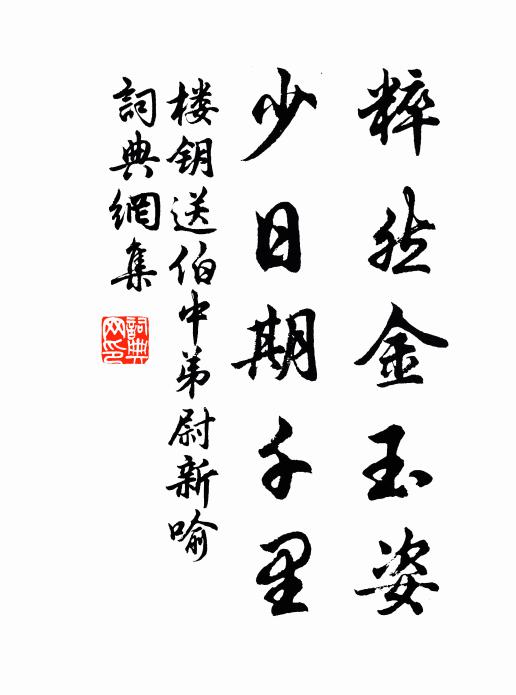 粹然金玉姿
少日期千里
楼钥送伯中弟尉新喻
詞典網集
詞典網印